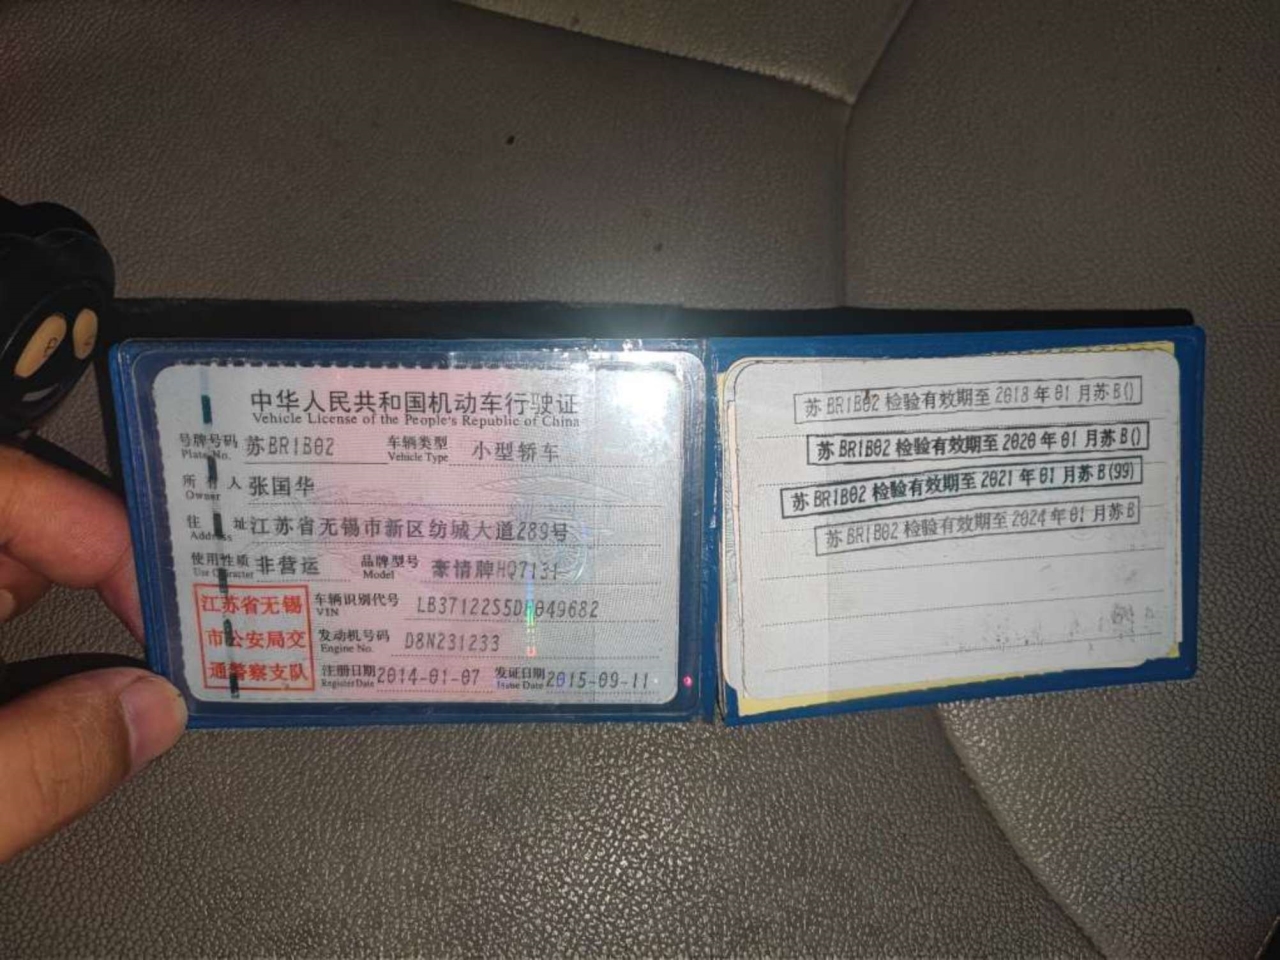 中华人民共和国机动车行驶证
Vehicle License of the People's Republic of China
号牌号码 苏BR1B02 车辆类型 小型轿车
Plate No. Vehicle Type
所有人 张国华
Owner
住址 江苏省无锡市新区纺城大道289号
Address
使用性质 非营运 品牌型号 豪情牌HQ7131
Use Character Model
江苏省无锡
市公安局交
通警察支队
车辆识别代号 LB37122S5DH049682
VIN
发动机号码 D8N231233
Engine No.
注册日期 2014-01-07 发证日期 2015-09-11
Register Date Issue Date
苏BR1B02 检验有效期至 2018 年 01 月苏B()
苏BR1B02 检验有效期至 2020 年 01 月苏B()
苏BR1B02 检验有效期至 2021 年 01 月苏B(99)
苏BR1B02 检验有效期至 2024 年 01 月苏B